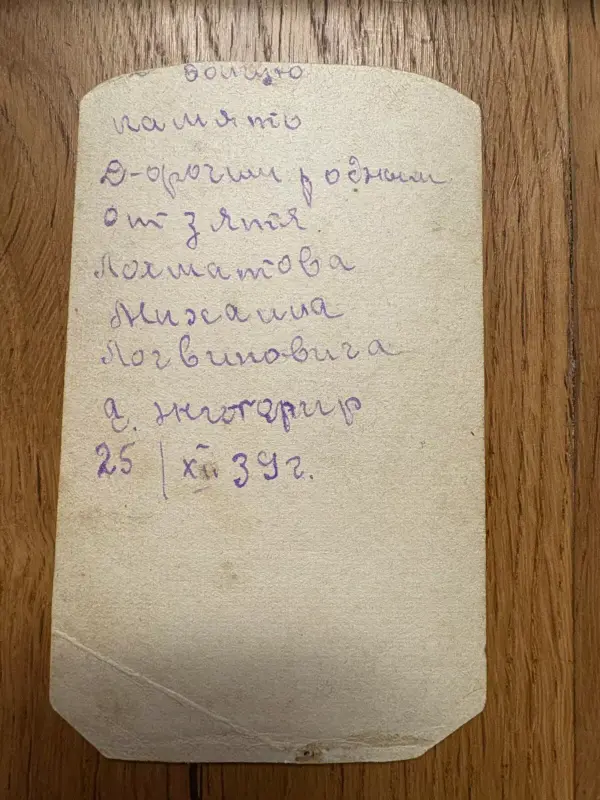 память
Дорогим родным
от зятя
Лохматова
Михаила
Логвиновича
25 | XII 39 г.